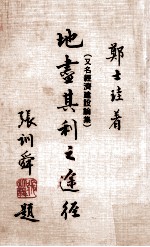 鄭士珪着
地盡其利之途徑
(又名經濟建設論集)
張訓舜題